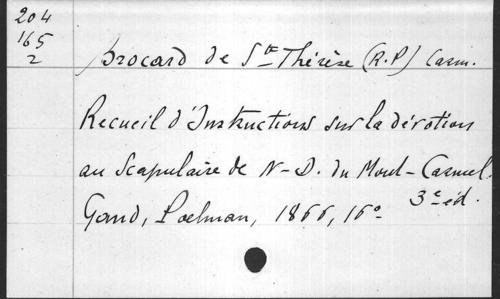 204
165
2
Brocard de Ste Thérèse (R.P) Carm.
Recueil d'Instructions sur la dévotion
au Scapulaire de N-D. du Mont-Carmel.
Gand, Poelman, 1866, 16º 3e éd.